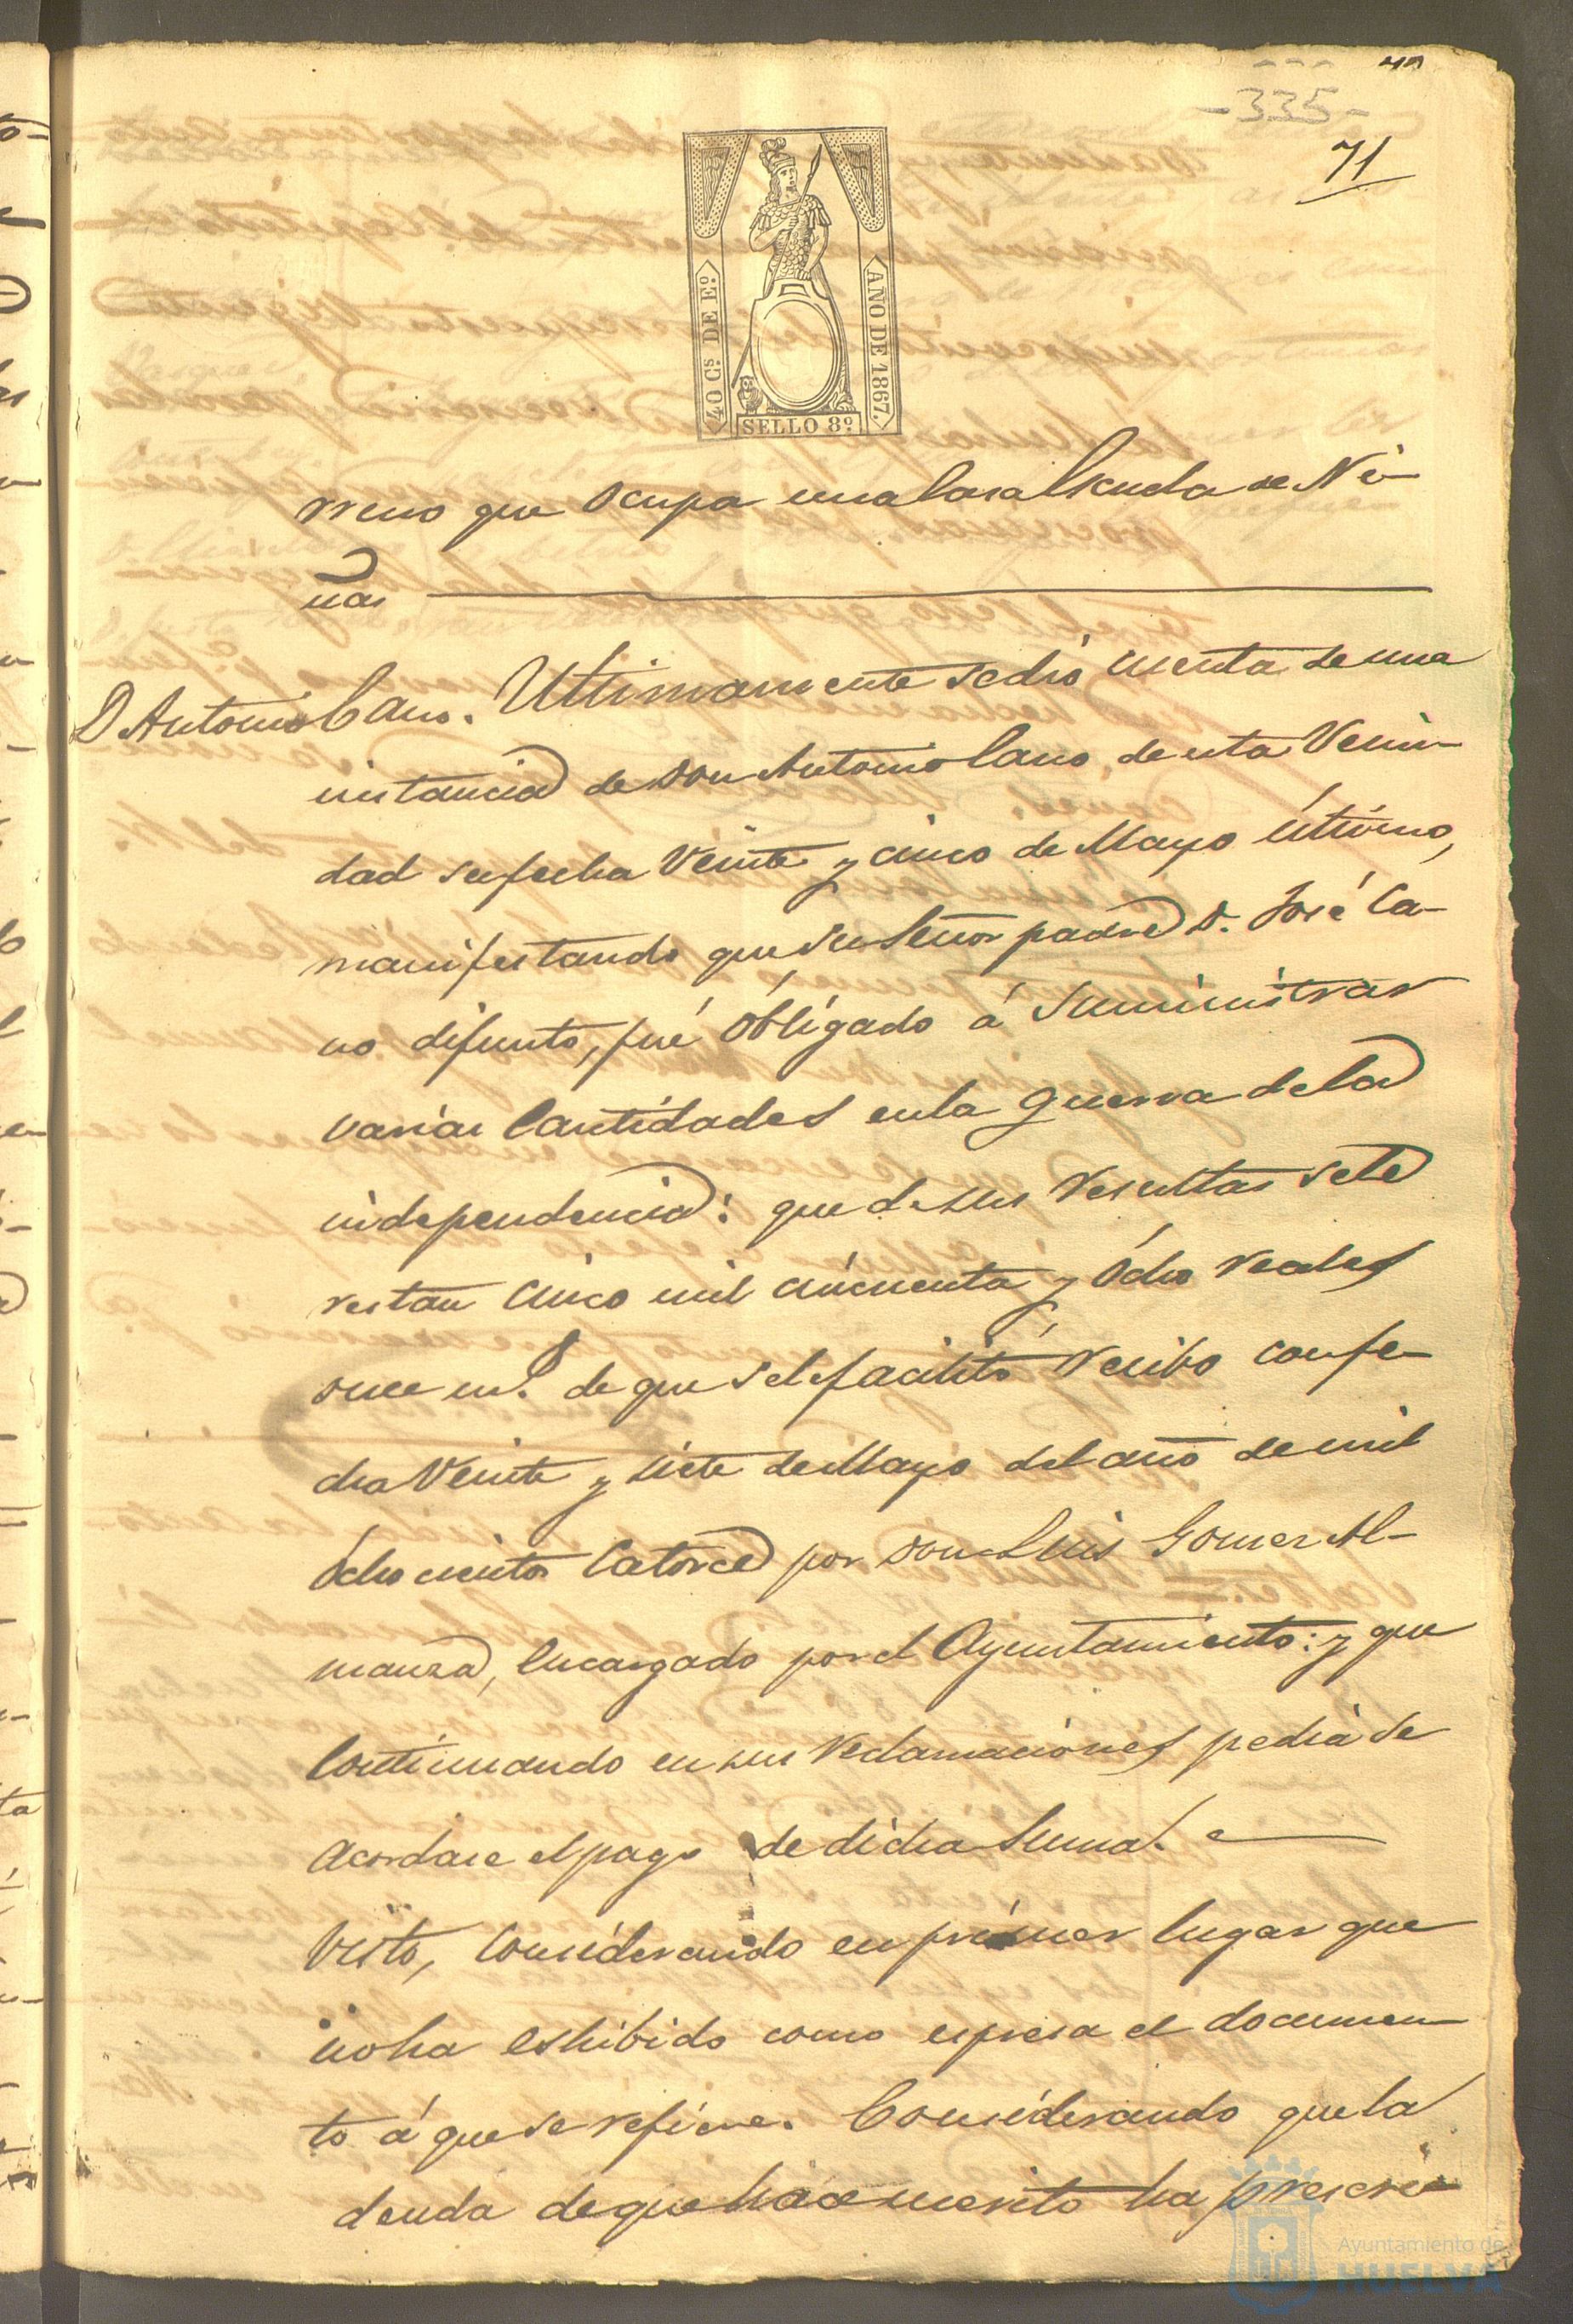 -335-
71
40 Cs DE Eo.
AÑO DE 1867.
SELLO 8o.
rreno que ocupa una Casa Escuela de Ni-
ñas
D Antonio Cano. Ultimamente se dió cuenta de una
instancia de Don Antonio Cano, de esta Vecin-
dad su fecha Veinte y cinco de Mayo último,
manifestando que su Señor padre D. José Ca-
no difunto, fué Obligado á Suministrar
varias Cantidades en la guerra de la
independencia: que de sus resultas se le
restan Cinco mil cincuenta y Ocho reales
once ms. de que se le facilitó recibo con fe-
cha Veinte y siete de Mayo del año de mil
Ochocientos Catorce por Don Luis Gomez Al-
manza, Encargado por el Ayuntamiento: y que
Continuando en sus reclamaciones pedia se
acordase el pago de dicha Suma.
Visto, Considerando en primer lugar que
no ha eshibido como espresa el documen-
to á que se refiere. Considerando que la
deuda de que hace merito ha prescri-
Ayuntamiento de
HUELVA